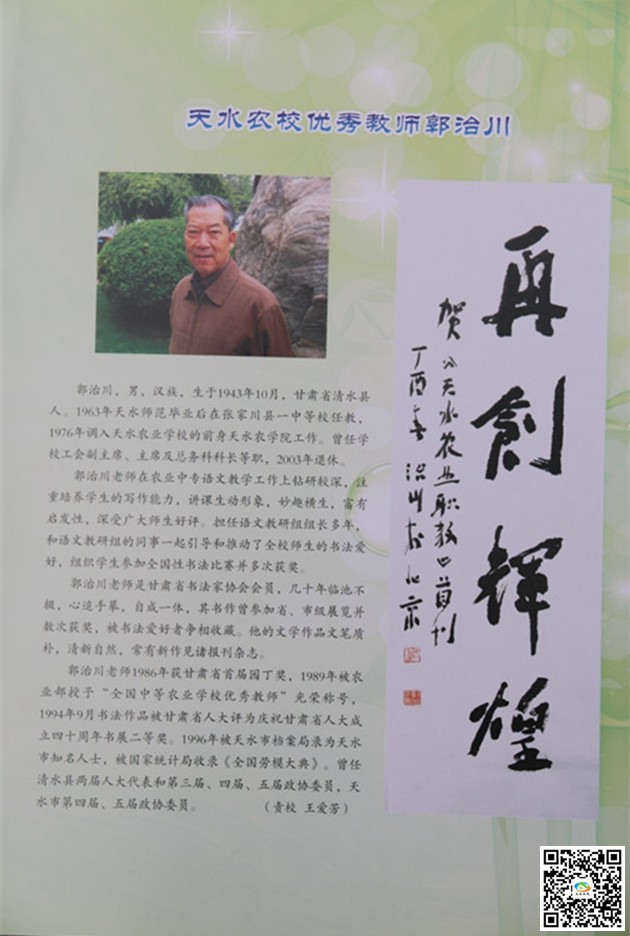 天水农校优秀教师郭治川
郭治川，男，汉族，生于1943年10月，甘肃省清水县
人。1963年天水师范毕业后在张家川县一中等校任教，
1976年调入天水农业学校的前身天水农学院工作。曾任学
校工会副主席、主席及总务科科长等职，2003年退休。
郭治川老师在农业中专语文教学工作上钻研较深，注
重培养学生的写作能力，讲课生动形象，妙趣横生，富有
启发性，深受广大师生好评。担任语文教研组组长多年，
和语文教研组的同事一起引导和推动了全校师生的书法爱
好，组织学生参加全国性书法比赛并多次获奖。
郭治川老师是甘肃省书法家协会会员，几十年临池不
辍，心追手摹，自成一体，其书作曾参加省、市级展览并
数次获奖，被书法爱好者争相收藏。他的文学作品文笔质
朴，清新自然，常有新作见诸报刊杂志。
郭治川老师1986年获甘肃省首届园丁奖，1989年被农
业部授予“全国中等农业学校优秀教师”光荣称号，
1994年9月书法作品被甘肃省人大评为庆祝甘肃省人大成
立四十周年书展二等奖。1996年被天水市档案局录为天水
市知名人士，被国家统计局收录《全国劳模大典》。曾任
清水县两届人大代表和第三届、四届、五届政协委员，天
水市第四届、五届政协委员。 （责校 王爱芳）
再創輝煌
贺《天水农业职教》首刊
丁酉春 治川於北京